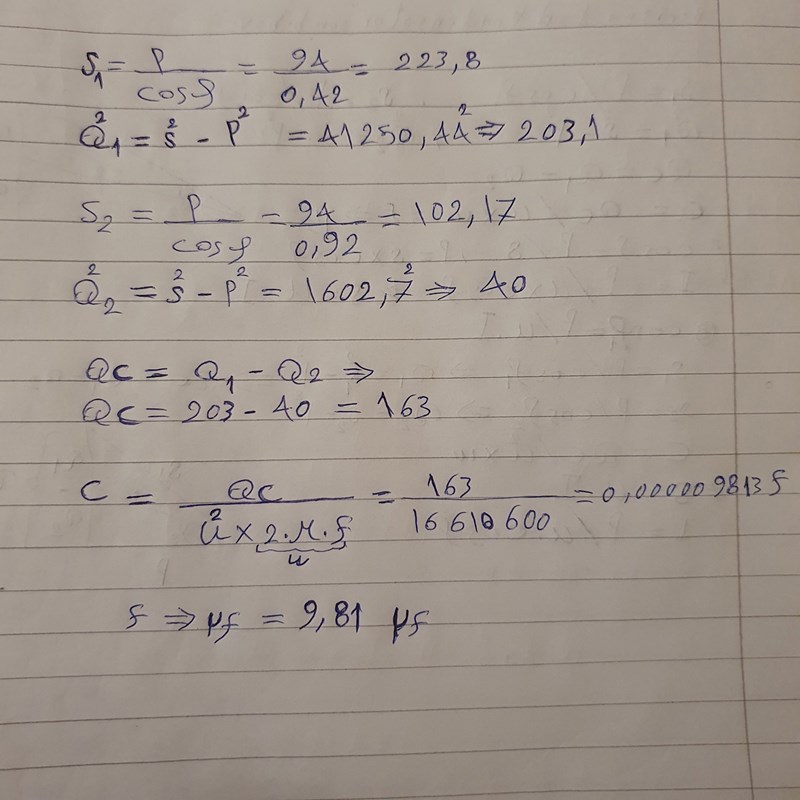 S₁ = P / cosφ = 94 / 0,42 = 223,8
Q₁² = S² - P² = 41250,44² ⇒ 203,1
S₂ = P / cosφ = 94 / 0,92 = 102,17
Q₂² = S² - P² = 1602,7² ⇒ 40
QC = Q₁ - Q₂ ⇒
QC = 203 - 40 = 163
C = QC / U² × 2.π.f = 163 / 16610600 = 0,000009813 f
u
f ⇒ µf = 9,81 µf